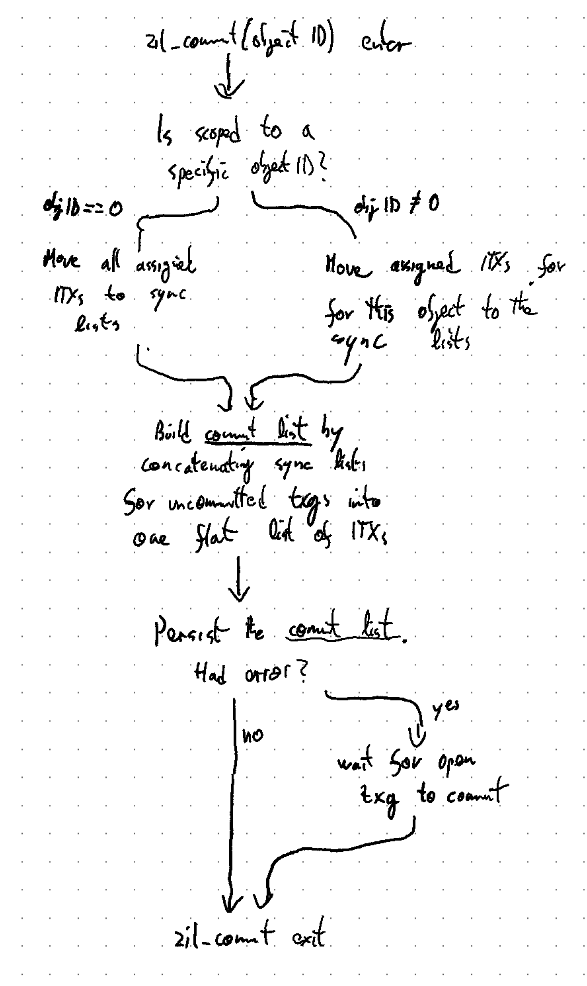 zil_commit(object ID) enter
Is scoped to a
specific object ID?
obj ID == 0
obj ID ≠ 0
Move all assigned
ITXs to sync
lists
Move assigned ITXs for
for this object to the
sync lists
Build commit list by
concatenating sync lists
for uncommitted txgs into
one flat list of ITXs
Persist the commit list.
Had error?
no
yes
wait for open
txg to commit
zil_commit exit